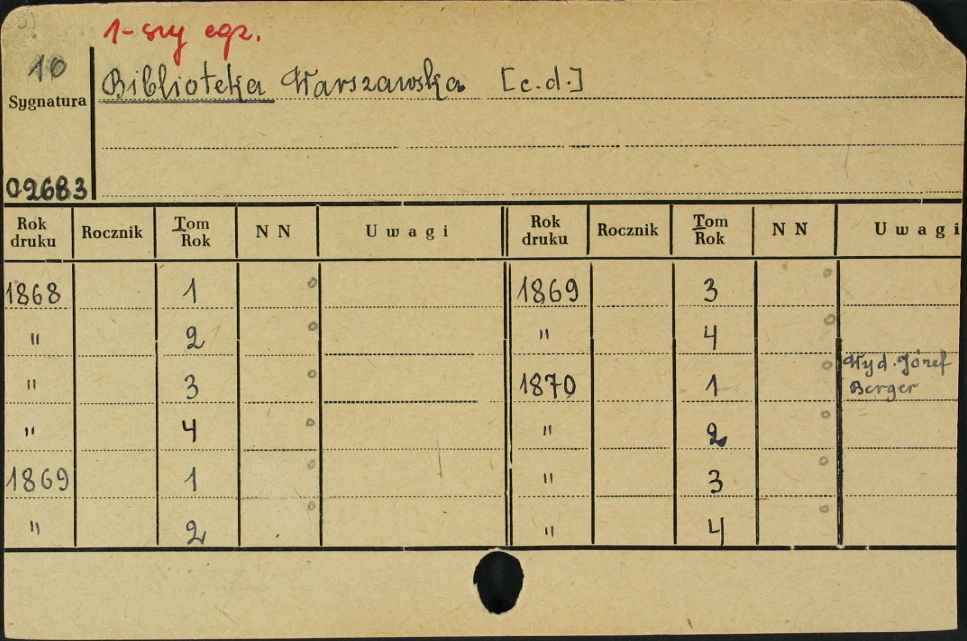 1-szy egz.
10
Biblioteka Warszawska [c.d.]
Sygnatura
02683
Rok druku Rocznik Tom Rok N N Uwagi Rok druku Rocznik Tom Rok N N Uwagi
1868 1 o 1869 3 o
" 2 o " 4 o
" 3 o 1870 1 o Wyd. Józef Berger
" 4 o " 2 o
1869 1 o " 3 o
" 2 o " 4 o